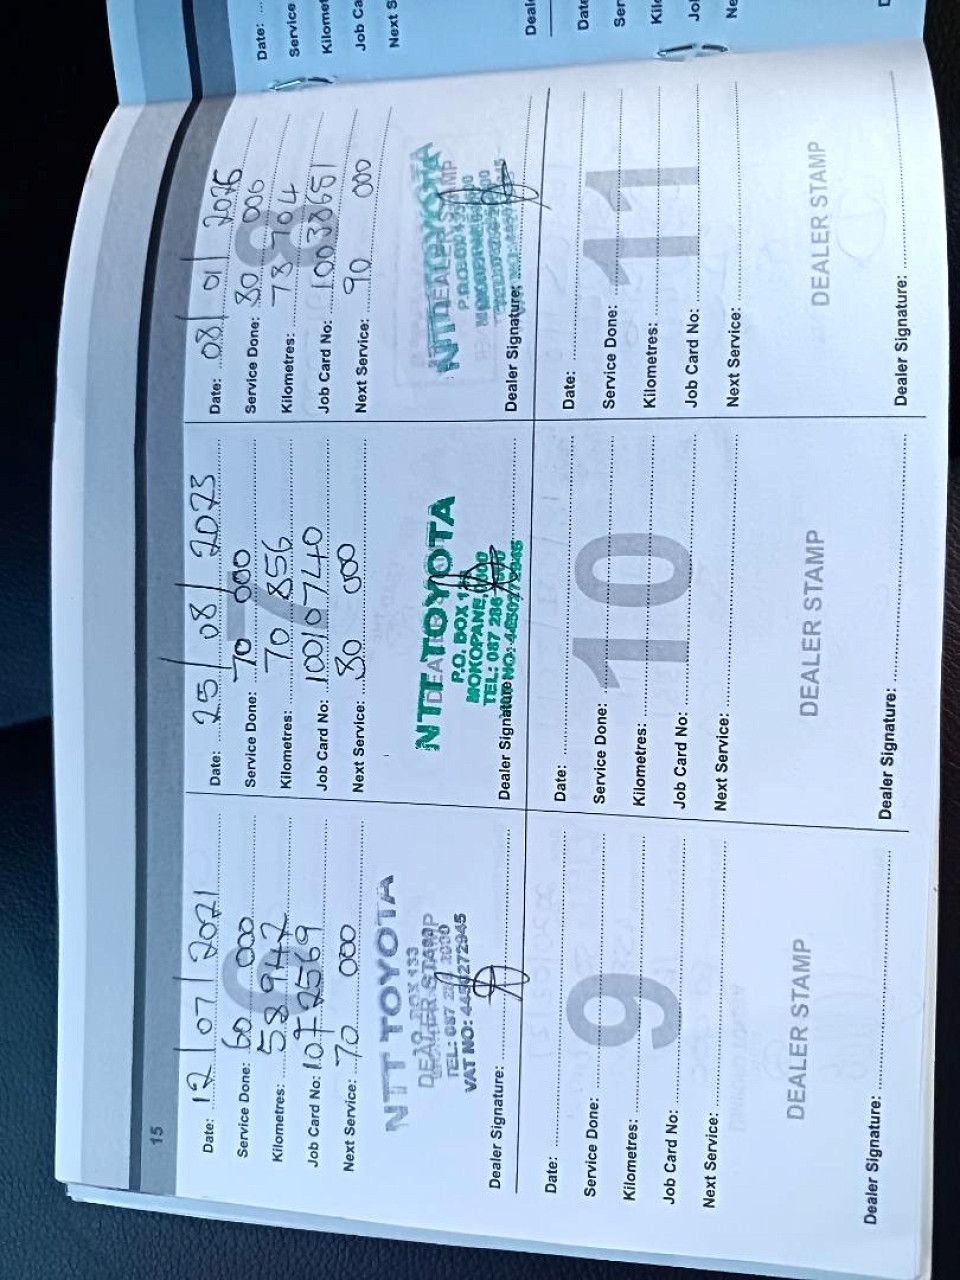 15
Date: 12/07/2021
Service Done: 60 000
Kilometres: 58 942
Job Card No:
Next Service: 70 000
6
NTT TOYOTA
DEALER STAMP
VAT NO: 4450272945
Dealer Signature:
Date: 25/08/2023
Service Done: 70 000
Kilometres: 70 856
Job Card No: 10010740
Next Service: 80 000
7
NTT TOYOTA
P.O. BOX
MOKOPANE,
TEL: 087 286
Dealer Signature
Date: 08/01/
Service Done: 80 000
Kilometres: 78 704
Job Card No:
Next Service: 90 000
8
NTT TOYOTA
DEALER STAMP
Dealer Signature:
9
Date:
Service Done:
Kilometres:
Job Card No:
Next Service:
DEALER STAMP
Dealer Signature:
10
Date:
Service Done:
Kilometres:
Job Card No:
Next Service:
DEALER STAMP
Dealer Signature:
11
Date:
Service Done:
Kilometres:
Job Card No:
Next Service:
DEALER STAMP
Dealer Signature:
Date:
Service
Kilomet
Job Ca
Next S
Deal
Date
Ser
Kil
Jo
Ne